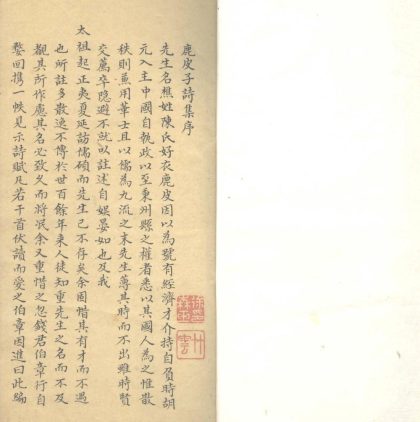 鹿皮子詩集序
先生名樵姓陳氏好衣鹿皮因以為號有經濟才介持自負時胡
元入主中國自執政以至東州縣之權者悉以其國人為之惟散
秩則魚用華士且以儒為九流之末先生薄其時而不出雖時賢
交薦卒隱避不就以註述自娯晏如也及我
太祖起正夷夏延訪儒碩而先生已不存矣余固惜其有才而不遇
也所註多散逸不傳於世百餘年來人徒知重先生之名而不及
觀其所作慮其名必致久而將泯余又重惜之忽錢君伯章行自
婺回携一帙見示詩賦凡若干首伏讀而愛之伯章因進曰此編